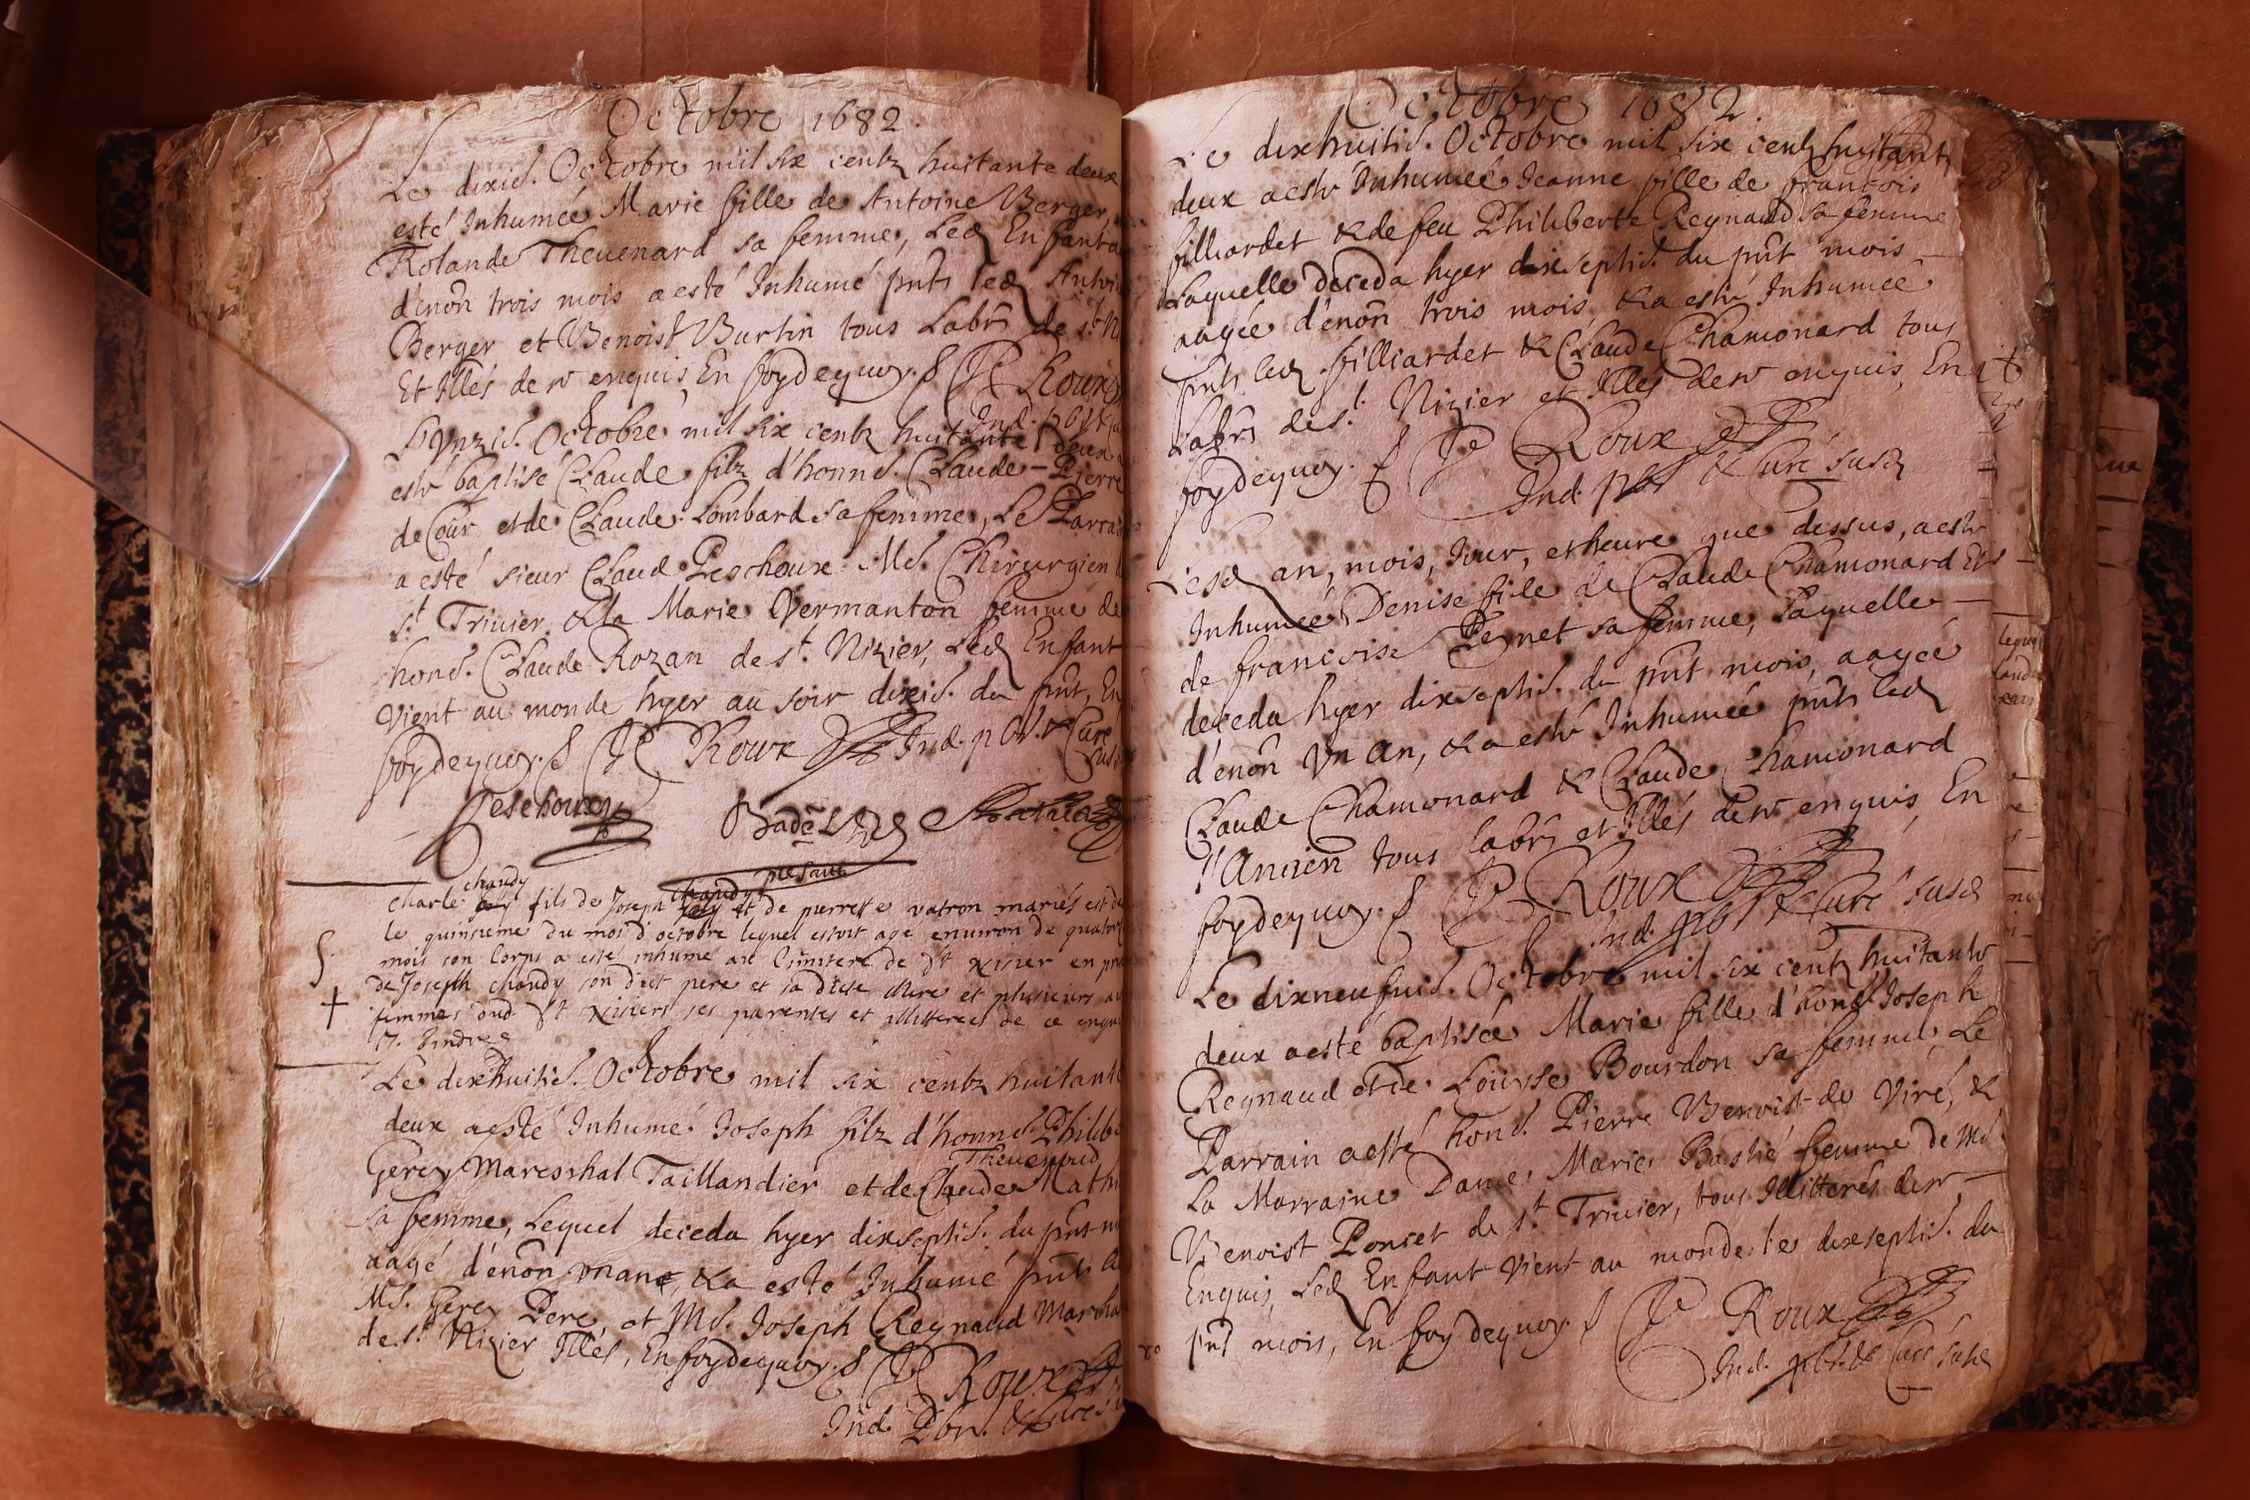 Octobre 1682.
Le dixie. Octobre mil six centz huitante deux
esté Inhumée Marie fille de Antoine Berger,
Rolande Theuenard sa femme, Led Enfant
d'enon trois mois a esté Inhumé pnts led Antoi
Berger et Benoist Burtin tous Labrs de st. N
Et Illés de ce enquis, En foydequoy. Roux
Ind. pbr &
L'ynzie. Octobre mil six centz huitante deux
esté baptisé Claude filz d'honne. Claude-Pierre
de Cour et de Claude Lombard sa femme, Le Parrai
a esté sieur Claud Peschoux Md. Chirurgien
st. Triuier, & la Marie Vermanton femme de
hond. Claude Rozan de st. Nizier, Led Enfant
vient au monde hyer au soir dixie. du pnt, En
foydequoy. Roux Ind. pbr. & Curé
Peschoux
presant
chandy chandy
Charle fils de Joseph et de pierrete vatron mariés est de
le quinsieme du mois d'octobre lequel estoit agé enuiron de quatre
mois son Corps a esté inhumé au Cimitere de st nisier en pre
de Joseph chandy son dict pere et sa dicte Mere et plusieurs
femmes dud st nisiers ses parentes et illitterées de ce enqui
Le dixhuitie. Octobre mil six centz huitante
deux a esté Inhumé Joseph filz d'honne. Philibe
Theuenard
Gerey Mareschal Taillandier et de Claude Mathi
sa femme, Lequel deceda hyer dixseptie. du pnt m
aagé d'enon vnan, & a esté Inhumé pnts le
Md. Gerey Pere, et Md. Joseph Reynaud Marcha
de st. Nizier Illés, En foydequoy. Roux
Ind. Pbr. & Curé
Octobre 1682.
Le dixhuitie. Octobre mil six centz huitante
deux a esté Inhumée Jeanne fille de françois
filliardet & de feu Philiberte Reynaud sa femme
Laquelle deceda hyer dixseptie. du pnt mois
aagée d'enon trois mois, & a esté Inhumée
pnts led filliardet & Claude Chamonard tous
Labrs de st. Nizier et Illés de ce enquis, En
foydequoy. Roux
Ind. pbr & Curé susd
Lesd an, mois, Jour, et heure que dessus, a esté
Inhumée Denise fille de Claude Chamonard Et
de francoise Peynet sa femme, Laquelle
deceda hyer dixseptie. du pnt mois, aagée
d'enon vn an, & a esté Inhumée pnts led
Claude Chamonard & Claude Chamonard
l'Ancien tous labrs et Illés de ce enquis, En
foydequoy. Roux
Ind. pbr & Curé susd
Le dixneufuie. Octobre mil six centz huitante
deux a esté baptisée Marie fille d'hond. Joseph
Reynaud et de Louyse Bourdon sa femme, Le
Parrain a esté hond. Pierre Benoist de Viré, &
La Marraine Dame Marie Bastié femme de Md.
Benoist Poncet de st. Triuier, tous Illitterés de ce
Enquis, Led Enfant vient au monde le dixseptie. du
pnt mois, En foydequoy. Roux
Ind. pbr. & Curé susd